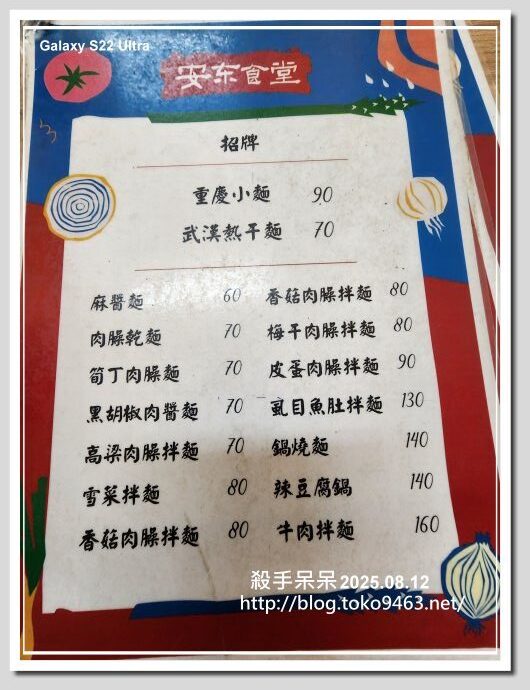 Galaxy S22 Ultra
安东食堂
招牌
重慶小麵 90
武漢熱干麵 70
麻醬麵 60
肉臊乾麵 70
筍丁肉臊麵 70
黑胡椒肉醬麵 70
高梁肉臊拌麵 70
雪菜拌麵 80
香菇肉臊拌麵 80
香菇肉臊拌麵 80
梅干肉臊拌麵 80
皮蛋肉臊拌麵 90
虱目魚肚拌麵 130
鍋燒麵 140
辣豆腐鍋 140
牛肉拌麵 160
殺手呆呆 2025.08.12
http://blog.toko9463.net/